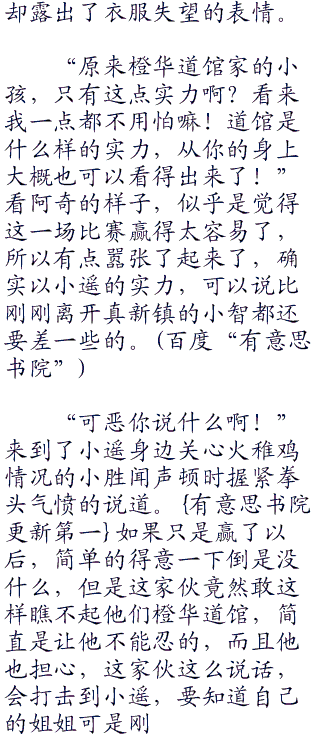 却露出了衣服失望的表情。
“原来橙华道馆家的小
孩，只有这点实力啊？看来
我一点都不用怕嘛！道馆是
什么样的实力，从你的身上
大概也可以看得出来了！”
看阿奇的样子，似乎是觉得
这一场比赛赢得太容易了，
所以有点嚣张了起来了，确
实以小遥的实力，可以说比
刚刚离开真新镇的小智都还
要差一些的。(百度“有意思
书院”)
“可恶你说什么啊！”
来到了小遥身边关心火稚鸡
情况的小胜闻声顿时握紧拳
头气愤的说道。{有意思书院
更新第一}如果只是赢了以
后，简单的得意一下倒是没
什么，但是这家伙竟然敢这
样瞧不起他们橙华道馆，简
直是让他不能忍的，而且他
也担心，这家伙这么说话，
会打击到小遥，要知道自己
的姐姐可是刚